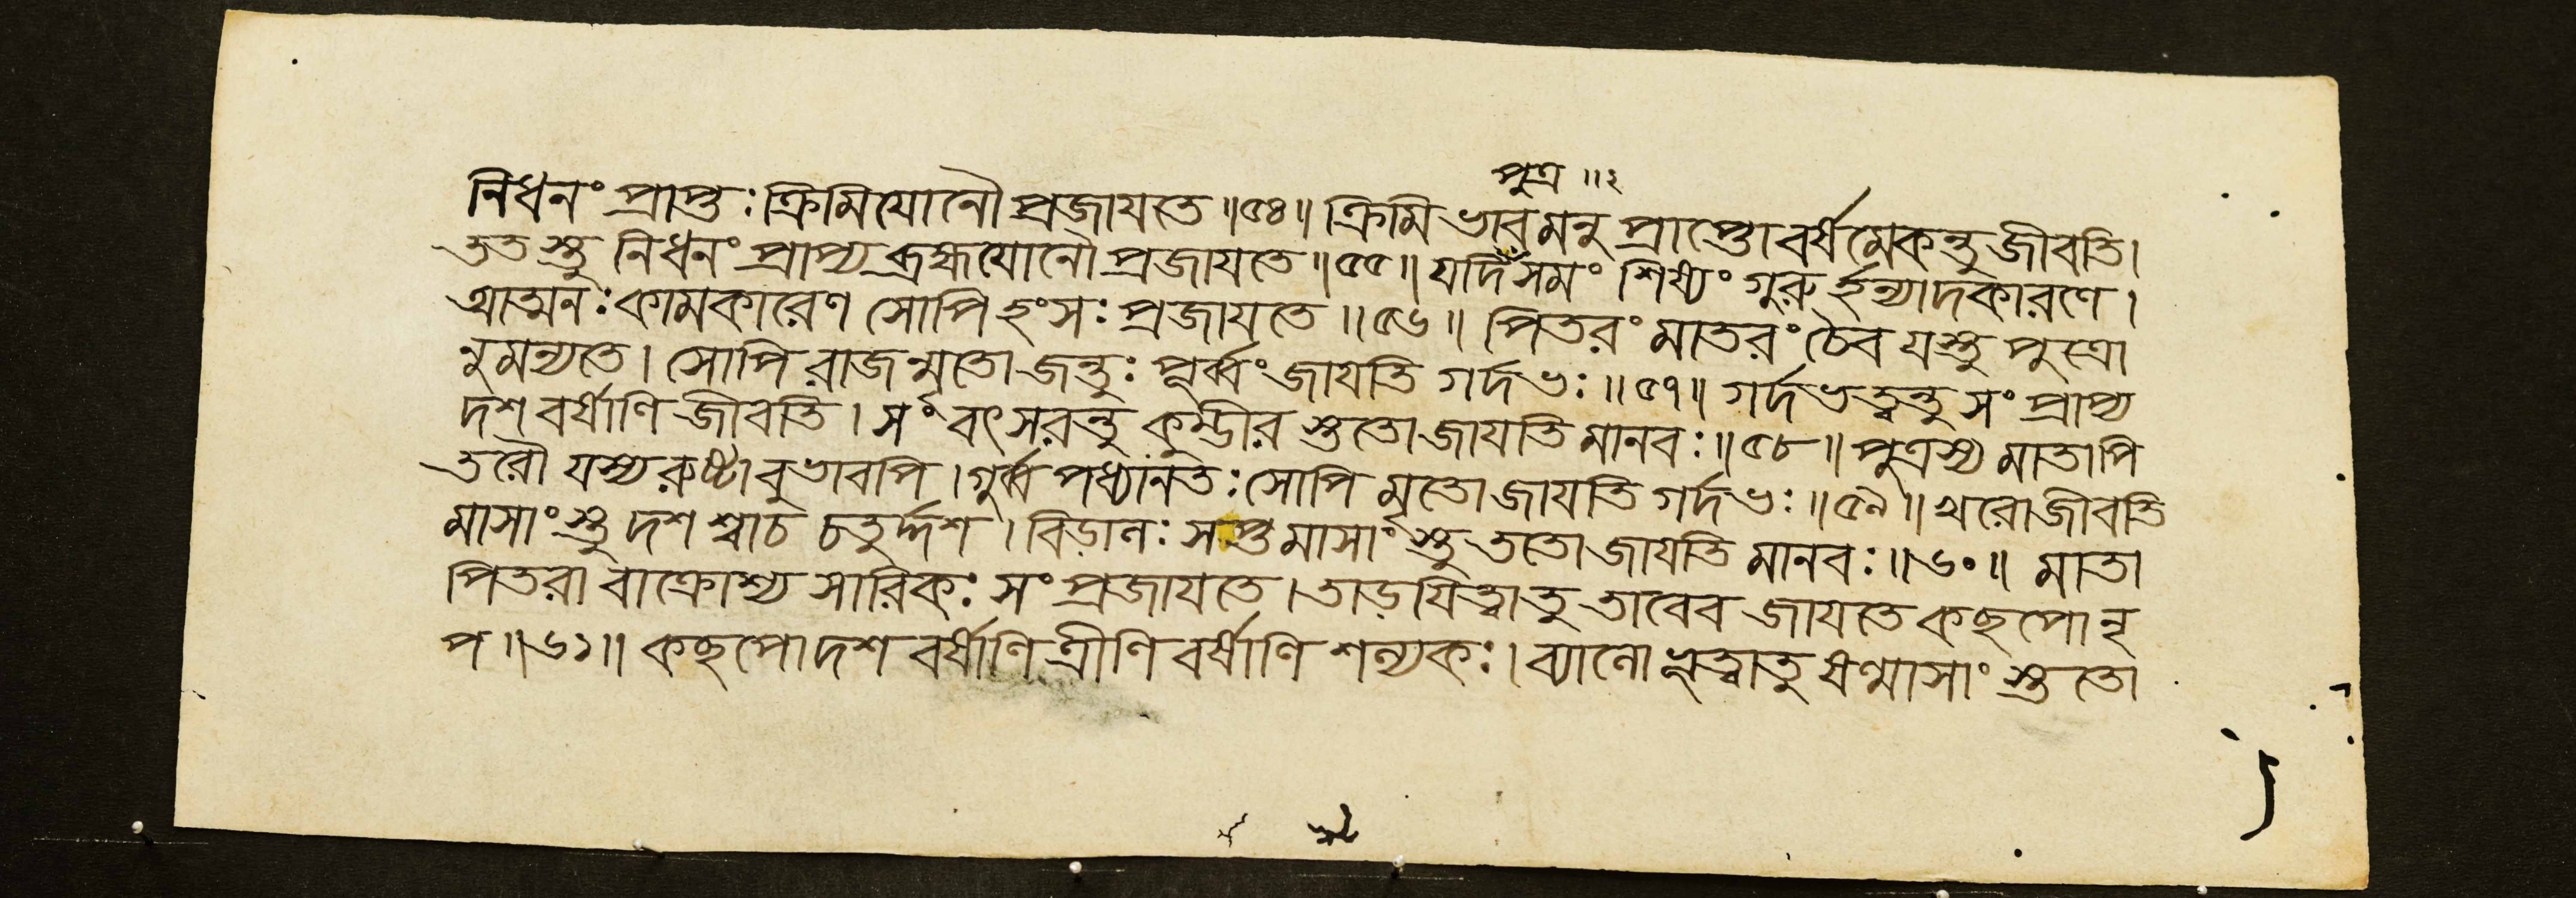 পুত্র ॥২
নিধনং প্রাপ্তঃ ক্রিমিযোনৌ প্রজাযতে ॥৫৪॥ ক্রিমিভাবমনুপ্রাপ্তো বর্ষমেকন্তু জীবতি।
ততস্তু নিধনং প্রাপ্য ব্রহ্মযোনৌ প্রজাযতে ॥৫৫॥ যদি সমং শিষ্যং গুরু র্হন্যাদকারণে।
আত্মনঃ কামকারেণ সোপি হংসঃ প্রজাযতে ॥৫৬॥ পিতরং মাতরং চৈব যস্তু পুত্রো
নুমন্যতে। সোপি রাজন্মৃতো জন্তুঃ পূর্ব্বং জাযতি গর্দভঃ ॥৫৭॥ গর্দভত্বন্তু সংপ্রাপ্য
দশ বর্ষাণি জীবতি। সংবৎসরন্তু কুম্ভীর স্ততো জাযতি মানবঃ ॥৫৮॥ পুত্রস্য মাতাপি
তরৌ যস্য রুষ্টাবুভাবপি। গুর্ব্বপধ্যানতঃ সোপি মৃতো জাযতি গর্দভঃ ॥৫৯॥ খরো জীবতি
মাসাংস্তু দশ শ্বাচ চতুর্দ্দশ। বিড়ালঃ সপ্তমাসাংস্তু ততো জাযতি মানবঃ ॥৬০॥ মাতা
পিতরাবাক্রোশ্য সারিকঃ সংপ্রজাযতে। তাড়যিত্বাতু তাবেব জাযতে কছপো নৃ
প ॥৬১॥ কছপো দশ বর্ষাণি ত্রীণি বর্ষাণি শল্যকঃ। ব্যালো ভূত্বাতু ষণ্মাসাং স্ততো